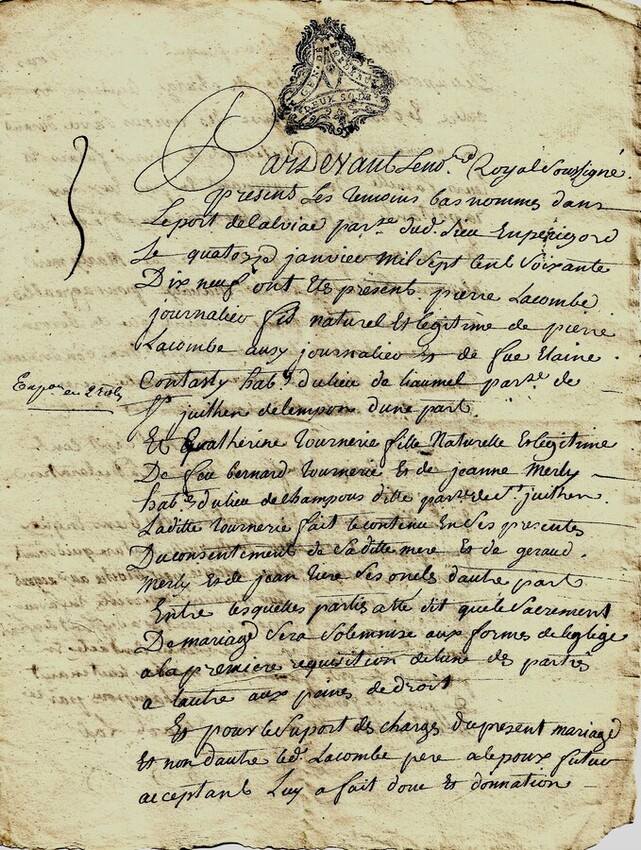 GEN. DE BORDEAUX
DEUX SOLS
Pardevant Le no.re Royal Soussigné
Present Les temoins bas nommes dans
Le port de Lalviae par.se dud. Lieu En perigord
Le quatorze janvier mil Sept Cent Soixante
Dix neuf ont Ete present pierre Lacombe
journalier fils naturel Et legitime de pierre
Lacombe aussy journalier Et de feue Elaine
Contasty hab.t du lieu de haumel par.se de
St juithen de lempon d'une part.
Et Catherine tournerie fille Naturelle Et legitime
De feu bernard tournerie Et de jeanne Merly
hab.te du lieu de champous ditte par.se de St juithen
Laditte tournerie fait le contenu En Ses presentes
Du consentement de Saditte mere Et de geraud
Merly Et de jean Ses oncles d'autre part
Entre lesquelles parties a Ete dit que le Sacrement
De mariage Sera Solemnise aux formes de leglize
a la premiere requisition de lune des parties
a lautre aux peines de droit
Et pour le Suport des charges du present mariage
Et non dautre led. Lacombe pere a lepoux futur
acceptant Luy a fait don Et donnation